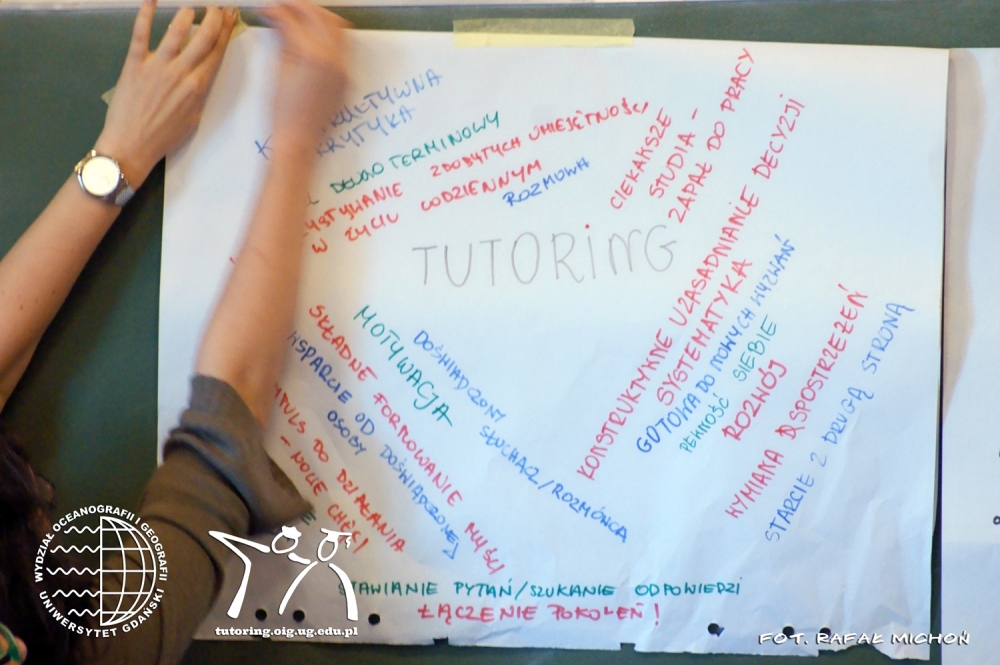 KRYTYKA
DŁUGOTERMINOWY
ZDOBYTYCH UMIEJĘTNOŚCI
W ŻYCIU CODZIENNYM
ROZMOWA
CIEKAWSZE
STUDIA -
ZAPAŁ DO PRACY
TUTORING
KONSTRUKTYWNE UZASADNIANIE DECYZJI
SYSTEMATYKA
GOTOWA DO NOWYCH WYZWAŃ
PEWNOŚĆ SIEBIE
ROZWÓJ
WYMIANA SPOSTRZEŻEŃ
STARCIE Z DRUGĄ STRONĄ
DOŚWIADCZONY SŁUCHACZ/ROZMÓWCA
MOTYWACJA
SKŁADNE FORMOWANIE MYŚLI
WSPARCIE OD
OSOBY DOŚWIADCZONEJ
DO DZIAŁANIA
- NOWE CHĘCI
PYTAŃ/SZUKANIE ODPOWIEDZI
ŁĄCZENIE POKOLEŃ!
WYDZIAŁ OCEANOGRAFII I GEOGRAFII
UNIWERSYTET GDAŃSKI
tutoring.oig.ug.edu.pl
FOT. RAFAŁ MICHOŃ